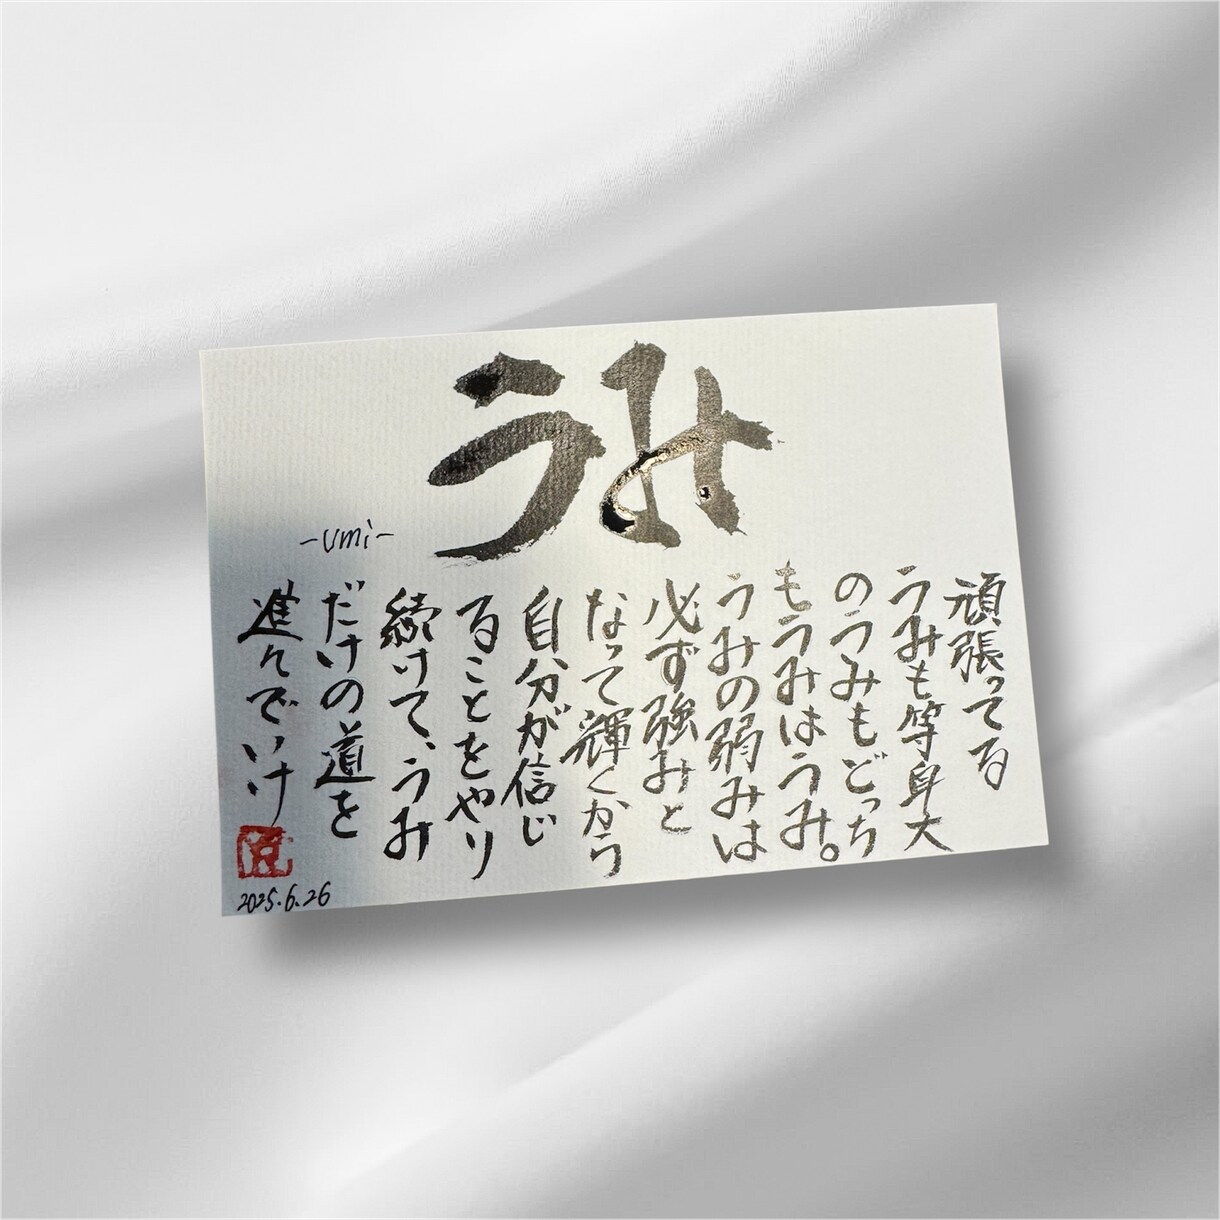 うみ
-umi-
頑張ってる
うみも等身大
のうみもどっち
もうみはうみ。
うみの弱みは
必ず強みと
なって輝くから
自分が信じ
ることをやり
続けて、うみ
だけの道を
進んでいけ
2025.6.26